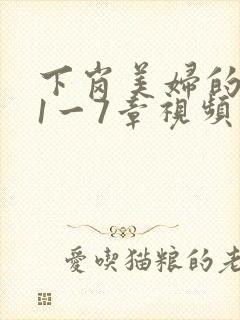 下岗美婦的
1一7章視頻
愛喫猫粮的老